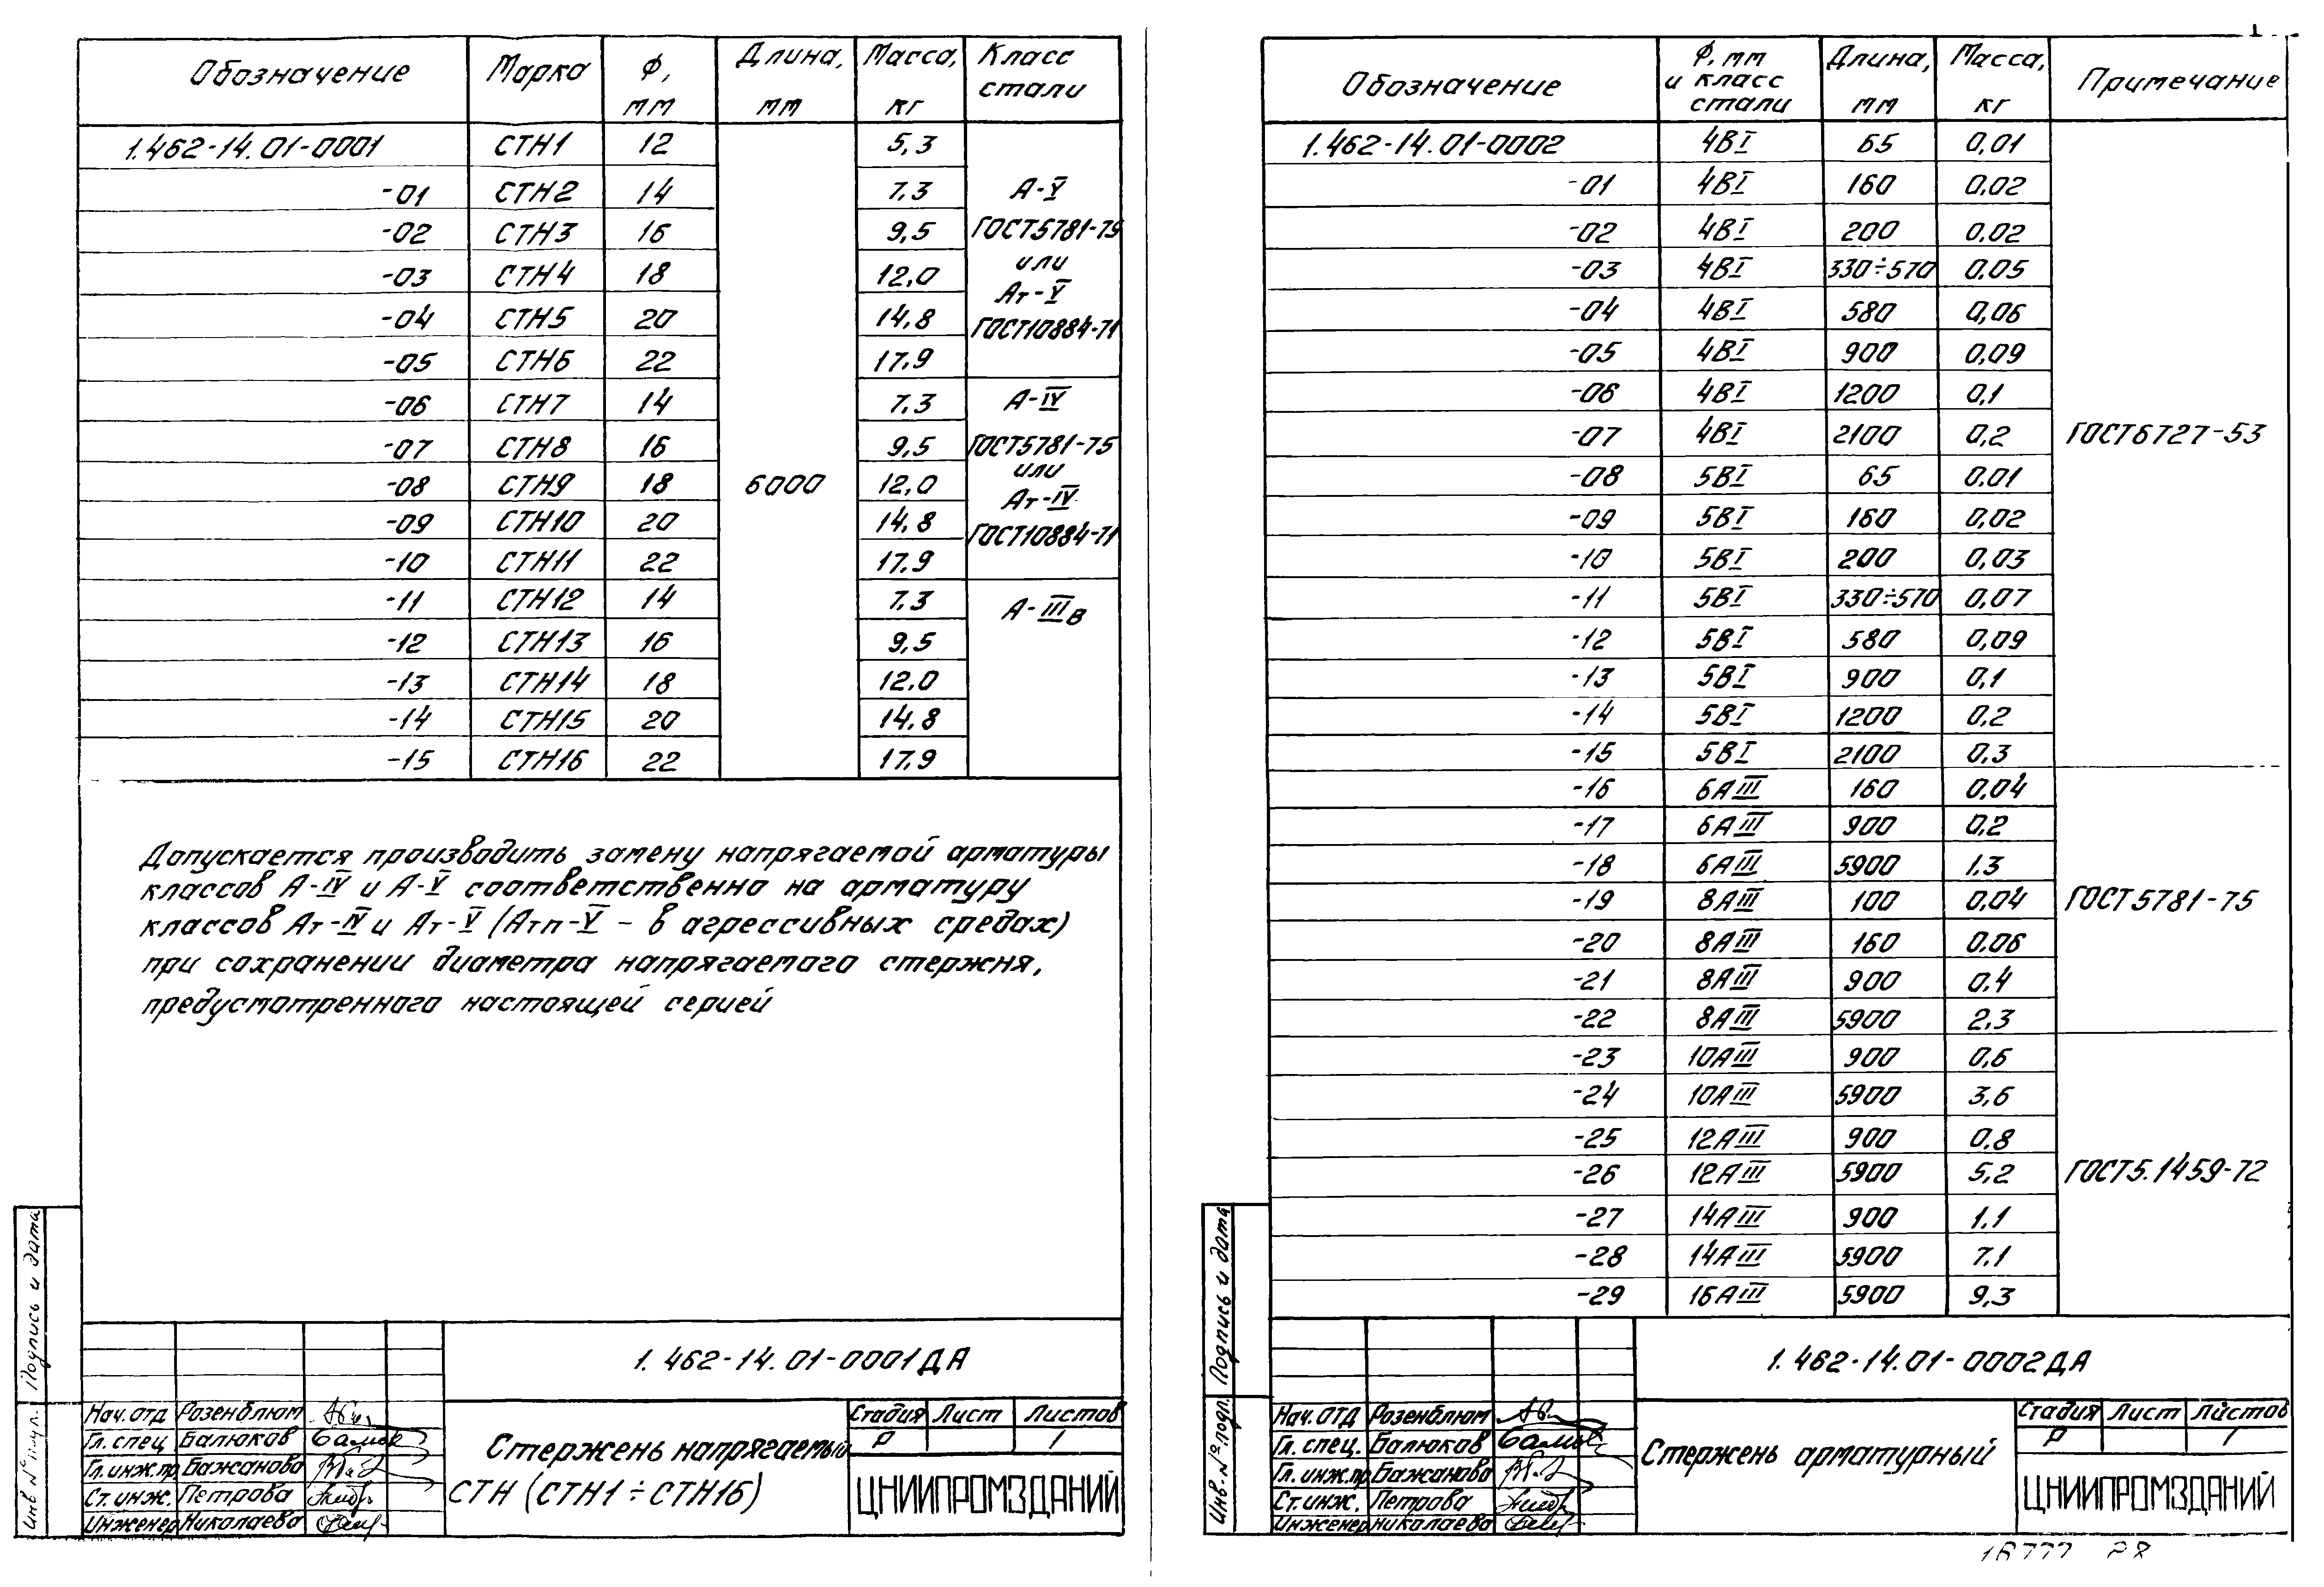 Обозначение Марка Ф, мм Длина, мм Масса, кг Класс стали
1.462-14.01-0001 СТН1 12 5,3
-01 СТН2 14 7.3 А-V
-02 СТН3 16 9,5 ГОСТ5781-75
-03 СТН4 18 12,0 или
Ат-V
-04 СТН5 20 14,8 ГОСТ10884-71
-05 СТН6 22 17.9
-06 СТН7 14 7.3 А-IV
-07 СТН8 16 9,5 ГОСТ5781-75
или
-08 СТН9 18 6000 12,0 Ат-IV
-09 СТН10 20 14,8 ГОСТ10884-71
-10 СТН11 22 17.9
-11 СТН12 14 7.3 А-IIIв
-12 СТН13 16 9,5
-13 СТН14 18 12.0
-14 СТН15 20 14.8
-15 СТН16 22 17.9
Допускается производить замену напрягаемой арматуры
классов А-IV и А-V соответственно на арматуру
классов Ат-IV и Ат-V (Атп-V - в агрессивных средах)
при сохранении диаметра напрягаемого стержня,
предусмотренного настоящей серией
Подпись и дата
Инв №
1.462-14.01-0001ДА
Нач.отд Розенблюм
Гл.спец Балюков
Гл.инж.пр Бажанова
Ст.инж. Петрова
Инженер Николаева
Стержень напрягаемый
СТН (СТН1÷СТН16)
Стадия Лист Листов
Р 1
ЦНИИПРОМЗДАНИЙ
Обозначение Ф, мм и класс стали Длина, мм Масса, кг Примечание
1.462-14.01-0002 4ВI 65 0,01
-01 4ВI 160 0.02
-02 4ВI 200 0.02
-03 4ВI 330÷570 0.05
-04 4ВI 580 0,06
-05 4ВI 900 0,09
-06 4ВI 1200 0,1
-07 4ВI 2100 0,2 ГОСТ6727-53
-08 5ВI 65 0.01
-09 5ВI 160 0,02
-10 5ВI 200 0,03
-11 5ВI 330÷570 0,07
-12 5ВI 580 0,09
-13 5ВI 900 0,1
-14 5ВI 1200 0.2
-15 5ВI 2100 0,3
-16 6АIII 160 0.04
-17 6АIII 900 0.2
-18 6АIII 5900 1.3
-19 8АIII 100 0.04 ГОСТ5781-75
-20 8АIII 160 0.06
-21 8АIII 900 0.4
-22 8АIII 5900 2.3
-23 10АIII 900 0,6
-24 10АIII 5900 3,6
-25 12АIII 900 0.8
-26 12АIII 5900 5,2 ГОСТ5.1459-72
-27 14АIII 900 1.1
-28 14АIII 5900 7.1
-29 16АIII 5900 9,3
Подпись и дата
Инв.№подл.
1.462-14.01-0002ДА
Нач.отд Розенблюм
Гл.спец. Балюков
Гл.инж.пр Бажанова
Ст.инж. Петрова
Инженер Николаева
Стержень арматурный
Стадия Лист Листов
Р 1
ЦНИИПРОМЗДАНИЙ